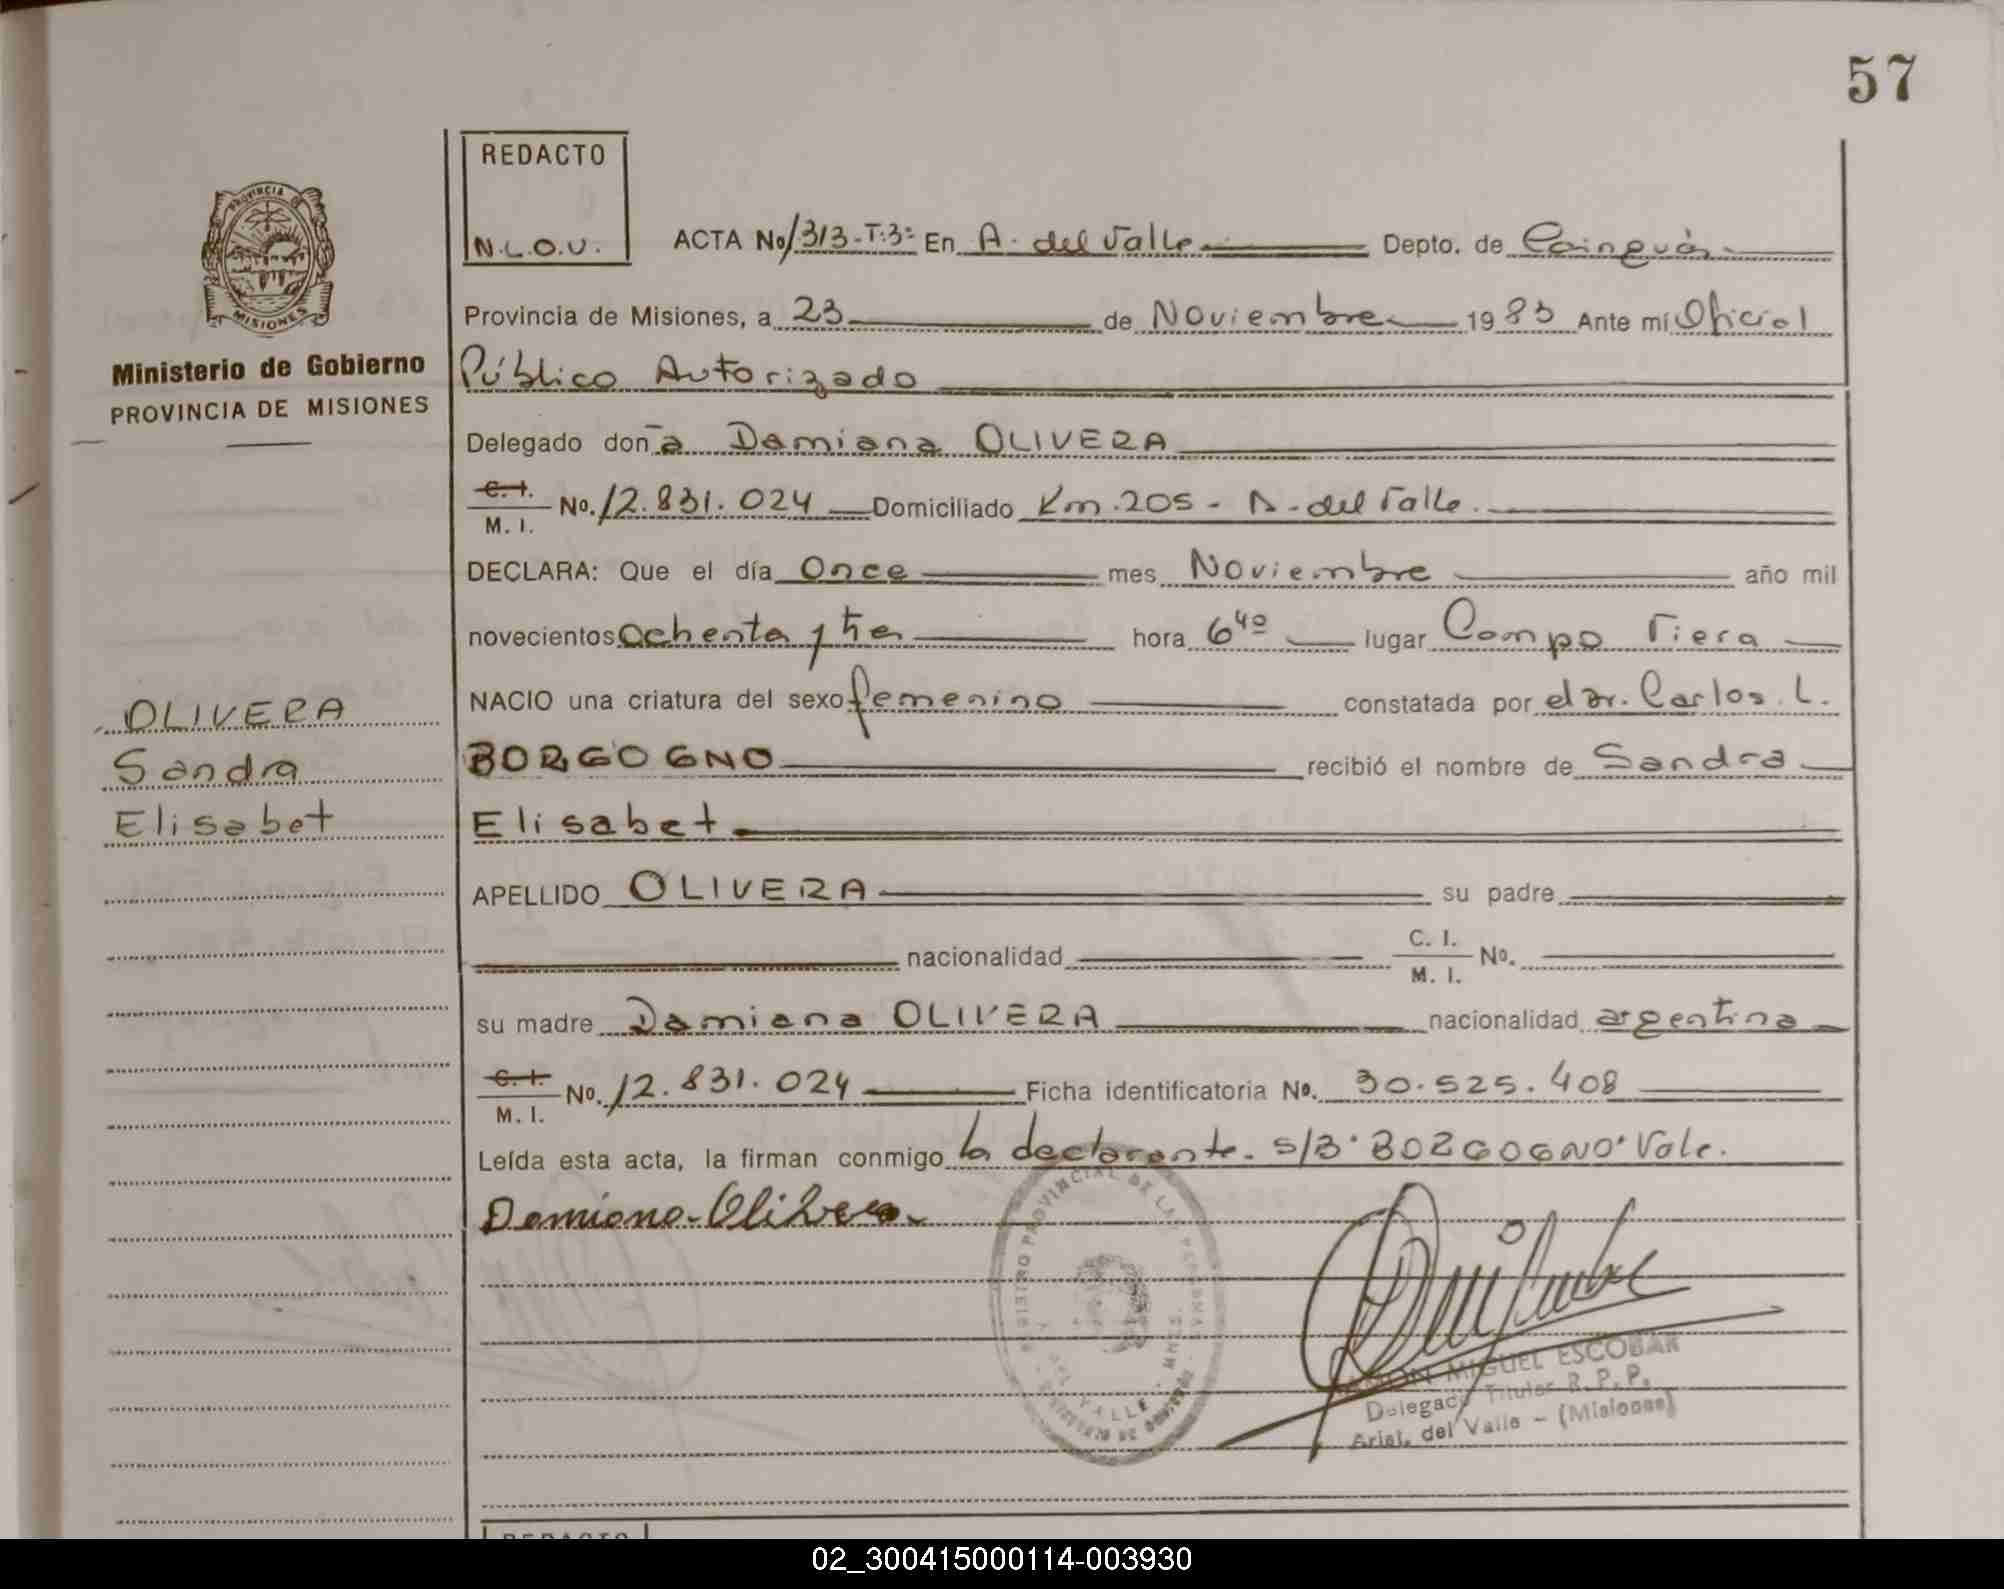 57
REDACTO
N.L.O.U.
PROVINCIA D
MISIONES
Ministerio de Gobierno
PROVINCIA DE MISIONES
ACTA No/313-T:3º En A. del Valle Depto. de Cainguás
Provincia de Misiones, a 23 de Noviembre 1983 Ante mí Oficial
Público Autorizado
Delegado don ̃a Damiana OLIVERA
C. I.
M. I. No. 12.831.024 Domiciliado Km.205 - A. del Valle.
DECLARA: Que el día Once mes Noviembre año mil
novecientos ochenta y tres hora 6⁴⁰ lugar Campo Viera
NACIO una criatura del sexo femenino constatada por el Dr. Carlos L.
BORGOGNO recibió el nombre de Sandra
Elisabet
APELLIDO OLIVERA su padre
nacionalidad C. I.
M. I. No.
su madre Damiana OLIVERA nacionalidad argentina
C. I.
M. I. No. 12.831.024 Ficha identificatoria No. 30.525.408
Leída esta acta, la firman conmigo la declarante. S/B "BORGOGNO" Vale.
Damiana Olivera
OLIVERA
Sandra
Elisabet
REGISTRO PROVINCIAL DE LAS PERSONAS
DEL VALLE - MNES.
RAMON MIGUEL ESCOBAR
Delegado Titular R.P.P.
Arist. del Valle - (Misiones)
REDACTO
02_300415000114-003930